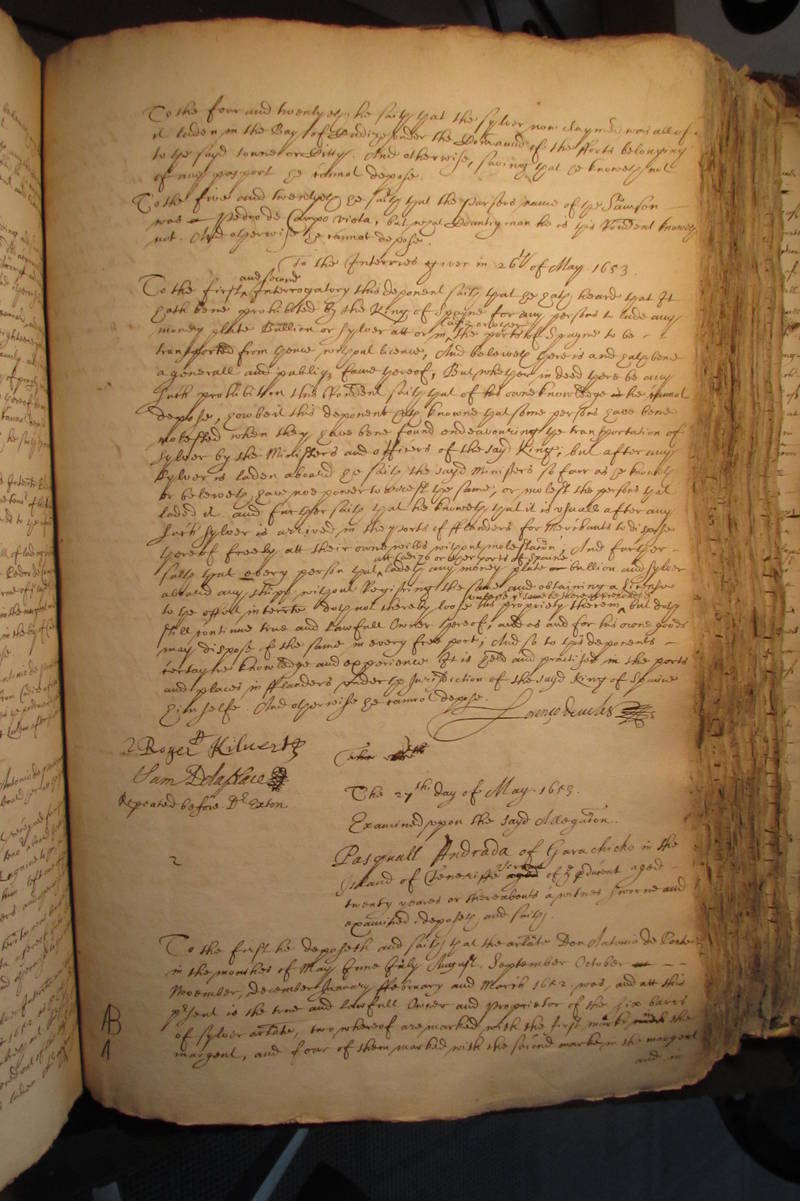 To the four and twentyeth he saith that the sylver now claymed was all of
it laden in the Bay of Cadiz under the Command of the fforts belonging
to the sayd towne or Citty. And otherwise, saving that he knoweth not
of any pasport he cannot depose.
To the five and twentyeth he saith that the Pursers name of the Samson
was Pedro de Campo viota, but what Countryman he is this Rendent knoweth
not. And otherwise he cannot depose.
To the Interries given in 26th of May 1653.
and second
To the first Interrogatory this deponent saith that he hath heard that It
hath bene prohibited by the King of Spayne for any persons to lade any
money plate Bullion or sylver att or in the ports of Spayne to be
transported from thence without licence, And beleiveth there is and hath bene
a generall and publiq fame thereof, But whether in deed there be any
such prohibition this Rendent saith that of his owne knowledge he cannot
depose, howbeit this deponent hath knowne that some persons have bene
molested when they have bene found endeavouring the transportation of
sylver by the Ministers and officers of the sayd King, but after any
sylver is laden aboard he saith the sayd Ministers so far as he knoweth
or beleiveth have noe power to arrest the same, or molest the persons that
laded it. and further saith that he knoweth that it is usuall after any
such sylver is arrived in the ports of fflanders for Merchants to dispose
thereof freely att their owne wills without molestation, And further
att Cadiz or other ports of Spaine
saith that every person that ladeth any money plate or bullion and sylver
aboard any shipp without Registring the same and obtaining a licence
to the officers interrte doth not thereby loose his propriety therein but doth
still continue true and lawfull Owner thereof, and as and for his owne goods
may dispose of the same in every free port, And so to this deponents
certayne knowledge and experience It is held and practised in the ports
and places in fflanders under the Jurisdiction of the sayd King of Spaine
himselfe. And otherwise he cannot depose.
Lorenzo
Roger Kilvert
Sam Delaplace
Repeated before Dr. Exton
The 27th day of May 1653.
Examined upon the sayd Allegation.
2
Pasquall Andrada of Garachicho in the
Island of Teneriffe aged
twenty yeares or thereabouts a witnes sworne and
examined deposeth and saith.
To the first he deposeth and saith that the arlate Don Antonio de Ponte
in the monthes of May June July August, September October
November, December January ffebruary and March 1652. was, and att this
pesent is the true and lawfull Owner and Proprietor of the six barrs
of sylver arlate, two whereof are marked with the first marke in the
margent, and four of them marked with the second marke in the margent
AB
1
and in